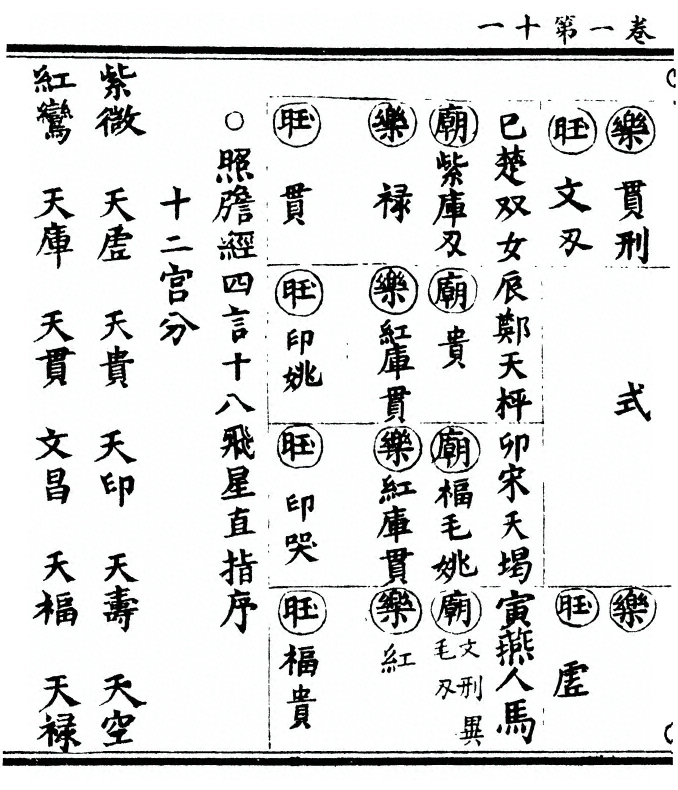 卷一第十一
樂 貫刑 式 樂
旺 文刃 旺 虗
巳楚双女 辰鄭天枰 卯宋天堨 寅燕人馬
廟 紫庫刃 廟 貴 廟 福毛姚 廟 文刑異
毛刃
樂 禄 樂 紅庫貫 樂 紅庫貫 樂 紅
旺 貫 旺 印姚 旺 印哭 旺 福貴
○照膽經四言十八飛星直指序
十二宫分
紫微 天虗 天貴 天印 天壽 天空
紅鸞 天庫 天貫 文昌 天福 天禄